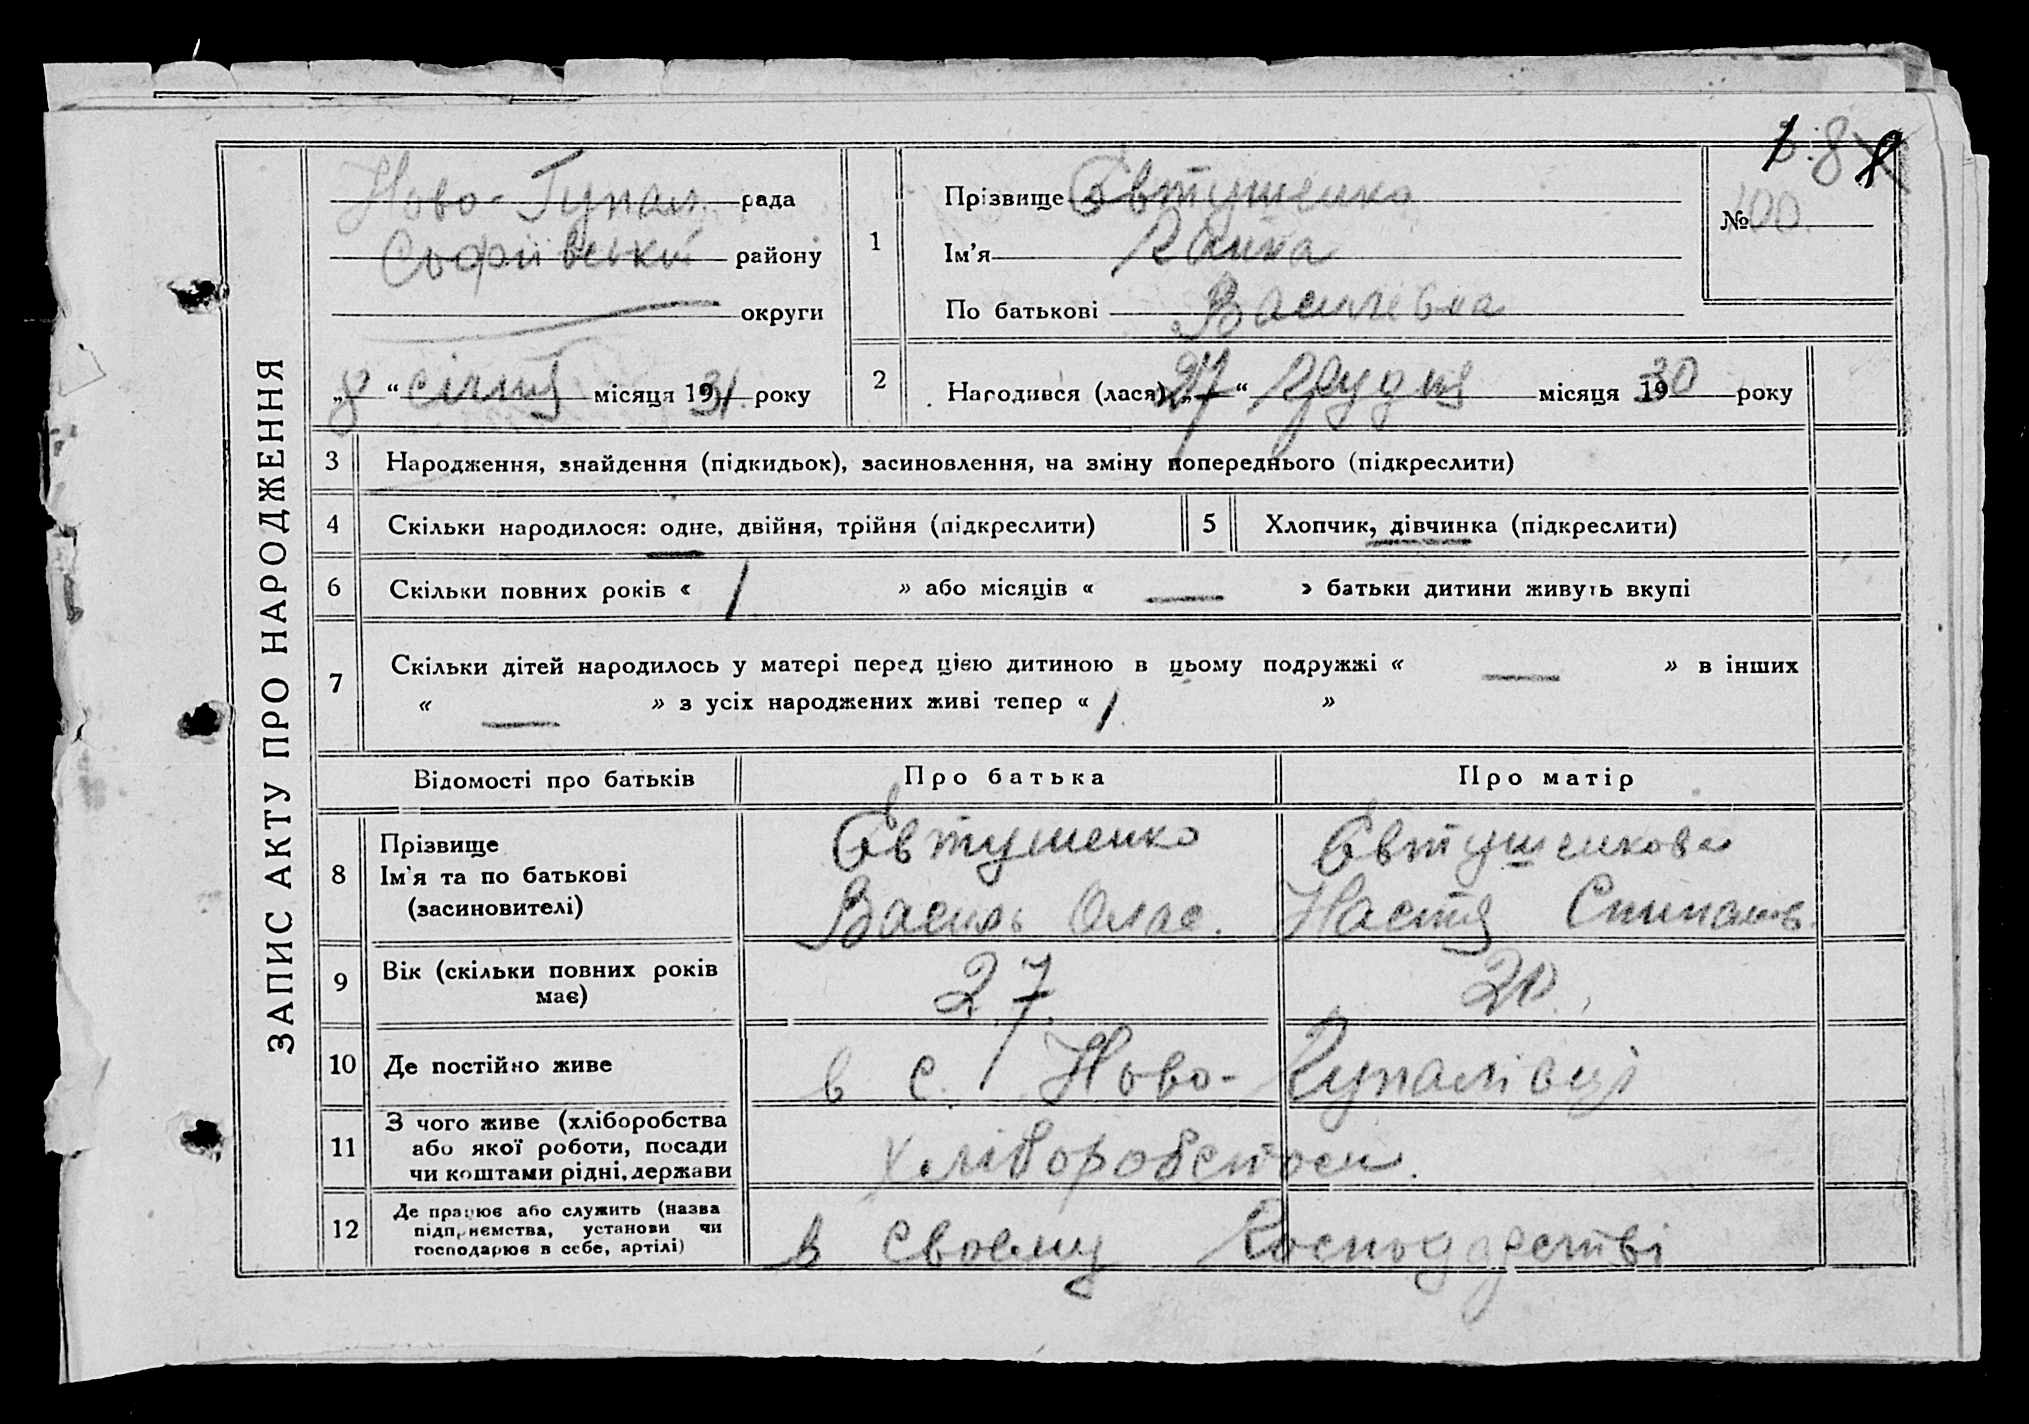 ЗАПИС АКТУ ПРО НАРОДЖЕННЯ
Ново-Гупал. рада
Софіївський району
округи
„8“ січня місяця 1931 року
1
Прізвище Євтушенко
Ім'я Ганна
По батькові Василівна
№ 100.
8
2
Народився (лася) „27“ Грудня місяця 1930 року
3 Народження, знайдення (підкидьок), засиновлення, на зміну попереднього (підкреслити)
4 Скільки народилося: одне, двійня, трійня (підкреслити) 5 Хлопчик, дівчинка (підкреслити)
6 Скільки повних років « 1 » або місяців « — » батьки дитини живуть вкупі
7 Скільки дітей народилось у матері перед цією дитиною в цьому подружжі « — » в інших
« — » з усіх народжених живі тепер « 1 »
Відомості про батьків Про батька Про матір
8 Прізвище
Ім'я та по батькові
(засиновителі)
Євтушенко
Василь Олас.
Євтушенкова
Настя Степанів.
9 Вік (скільки повних років
має)
27 20.
10 Де постійно живе в с. Ново-Гупалівці
11 З чого живе (хліборобства
або якої роботи, посади
чи коштами рідні, держави
хліборобством.
12 Де працює або служить (назва
підприємства, установи чи
господарює в себе, артілі)
в своєму Господарстві